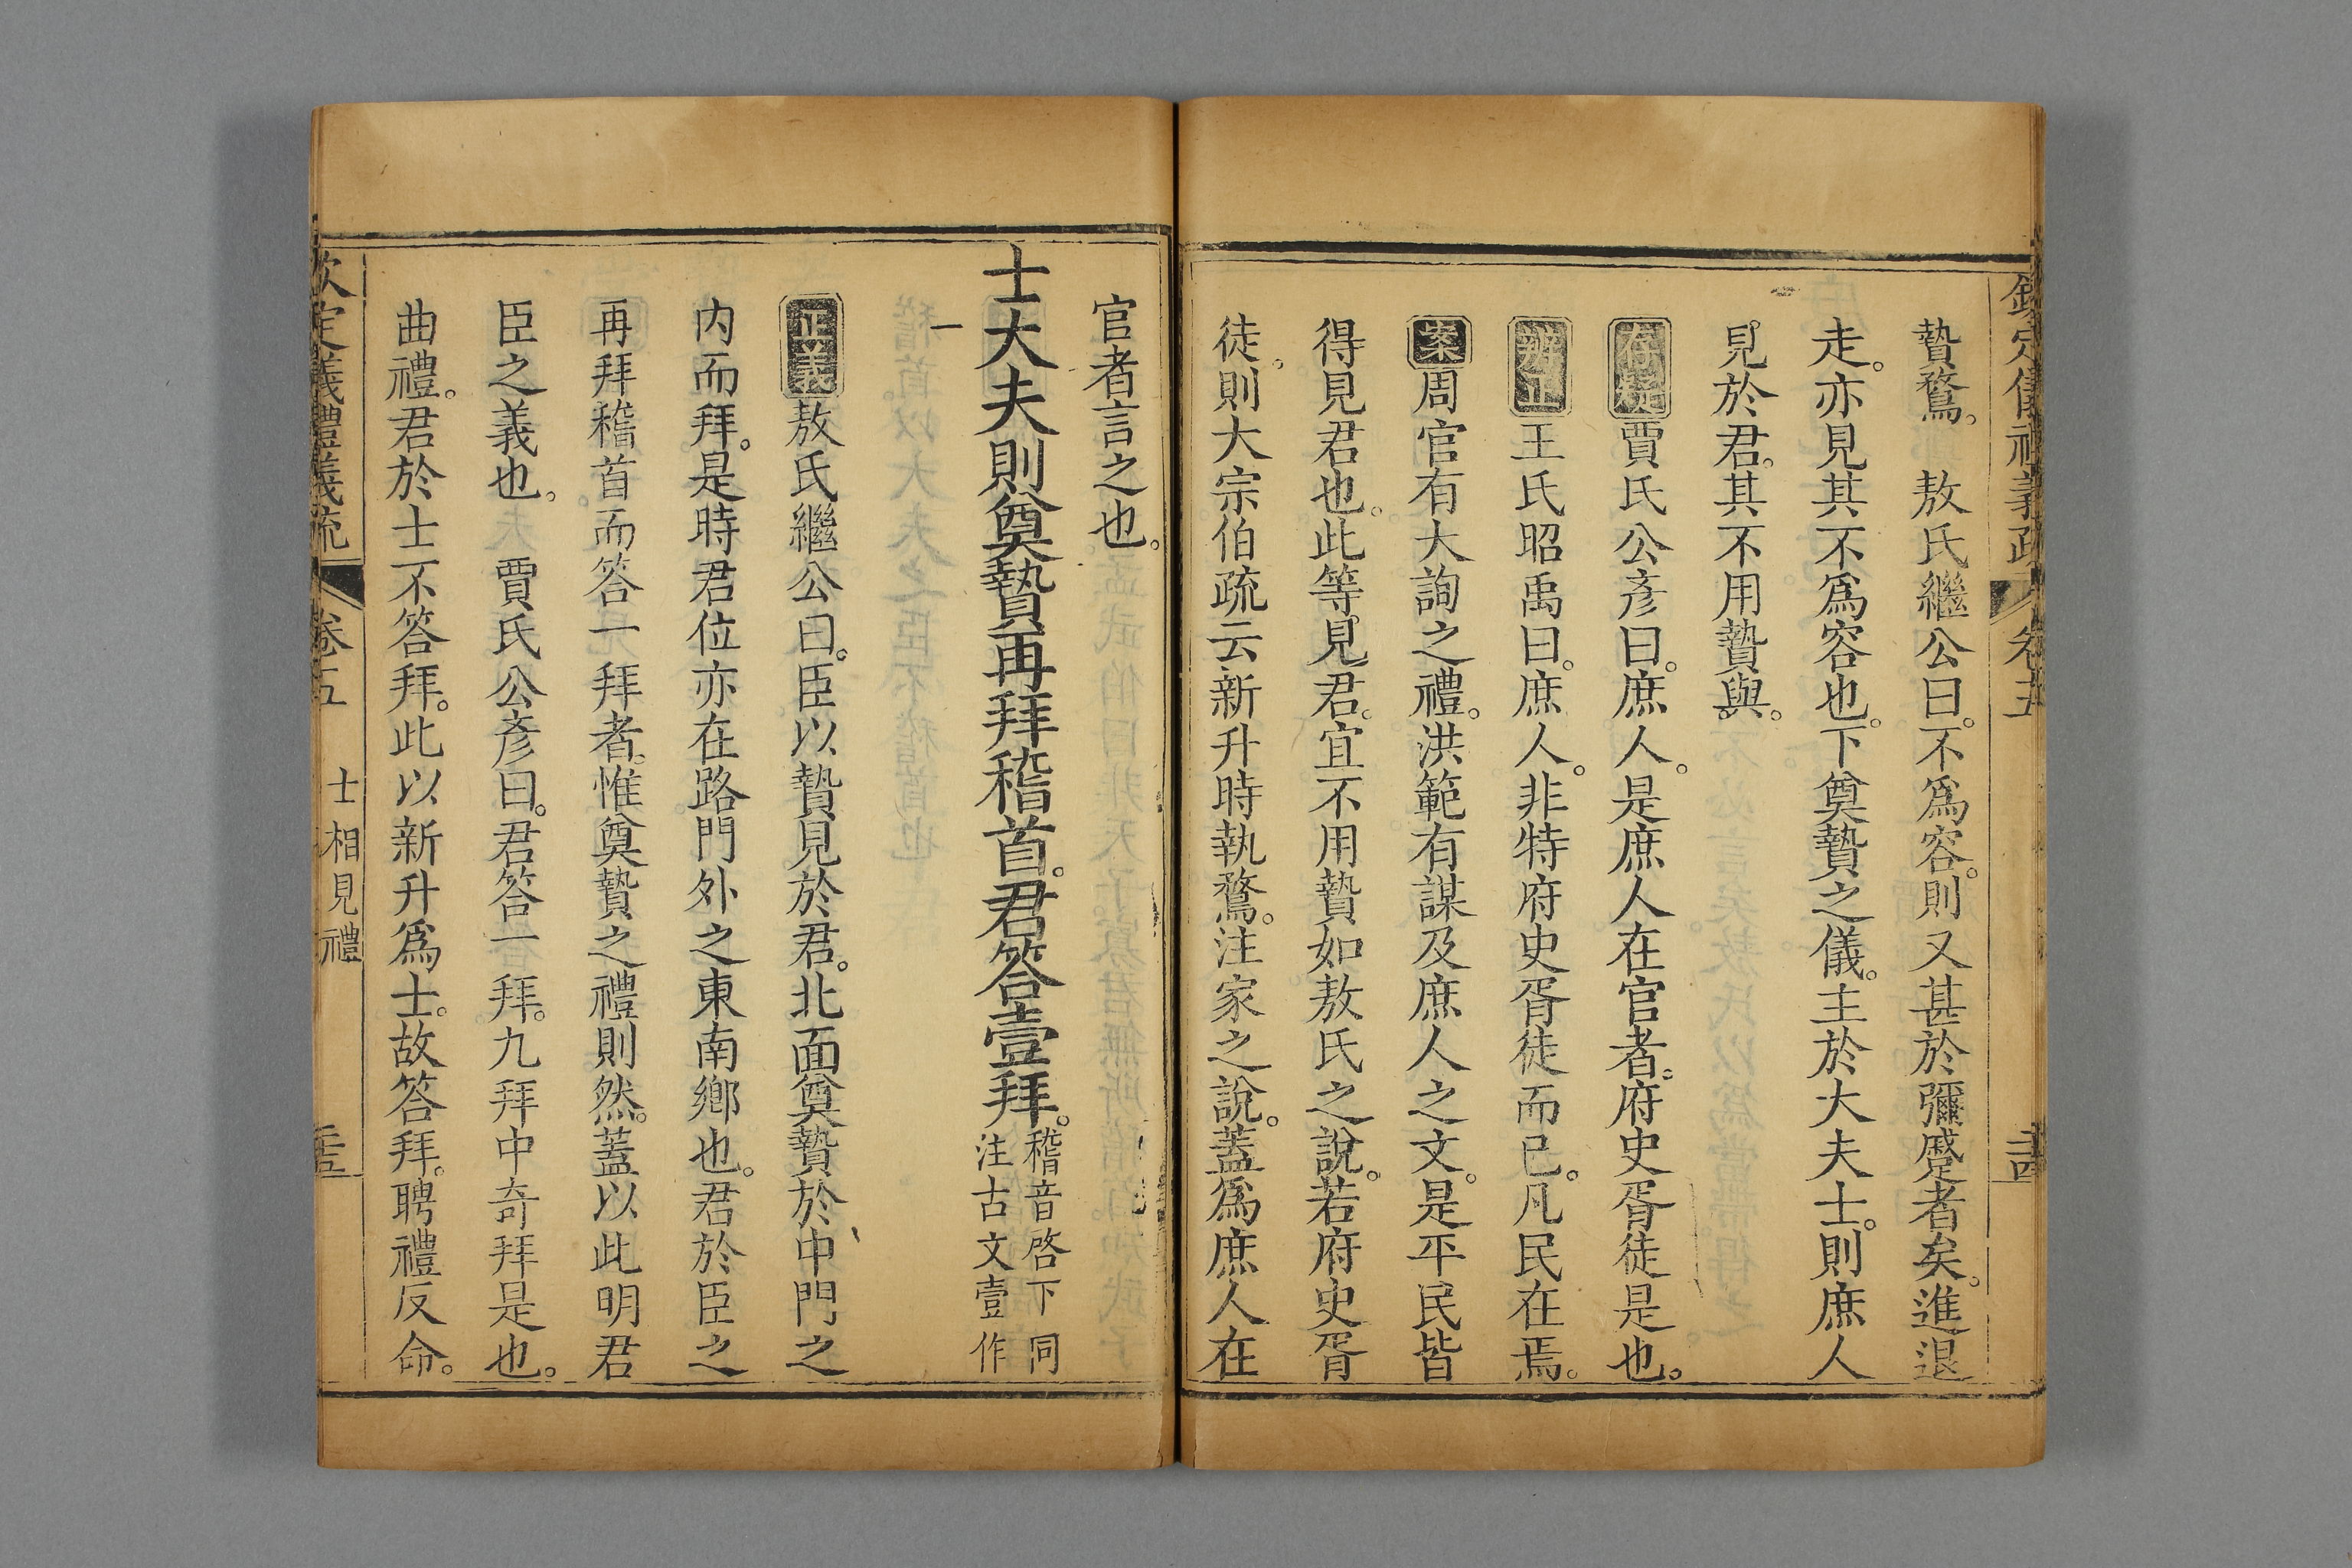 欽定儀禮義疏 卷五 二十四
贄鶩。 敖氏繼公曰。不爲容。則又甚於彌蹙者矣。進退
走。亦見其不爲容也。下奠贄之儀。主於大夫士。則庶人
見於君。其不用贄與。
存疑 賈氏公彥曰。庶人。是庶人在官者。府史胥徒是也。
辨正 王氏昭禹曰。庶人。非特府史胥徒而已。凡民在焉。
案 周官有大詢之禮。洪範有謀及庶人之文。是平民皆
得見君也。此等見君。宜不用贄如敖氏之說。若府史胥
徒。則大宗伯疏云新升時執鶩。注家之說。蓋爲庶人在
官者言之也。
士大夫則奠贄再拜稽首。君答壹拜。稽音啓下同
注古文壹作
一
正義 敖氏繼公曰。臣以贄見於君。北面奠贄於中門之
內而拜。是時君位亦在路門外之東南鄉也。君於臣之
再拜稽首而答一拜者。惟奠贄之禮則然。蓋以此明君
臣之義也。 賈氏公彥曰。君答一拜。九拜中奇拜是也。
曲禮。君於士不答拜。此以新升爲士。故答拜。聘禮反命。
欽定義禮義疏 卷五 士相見禮 二十五